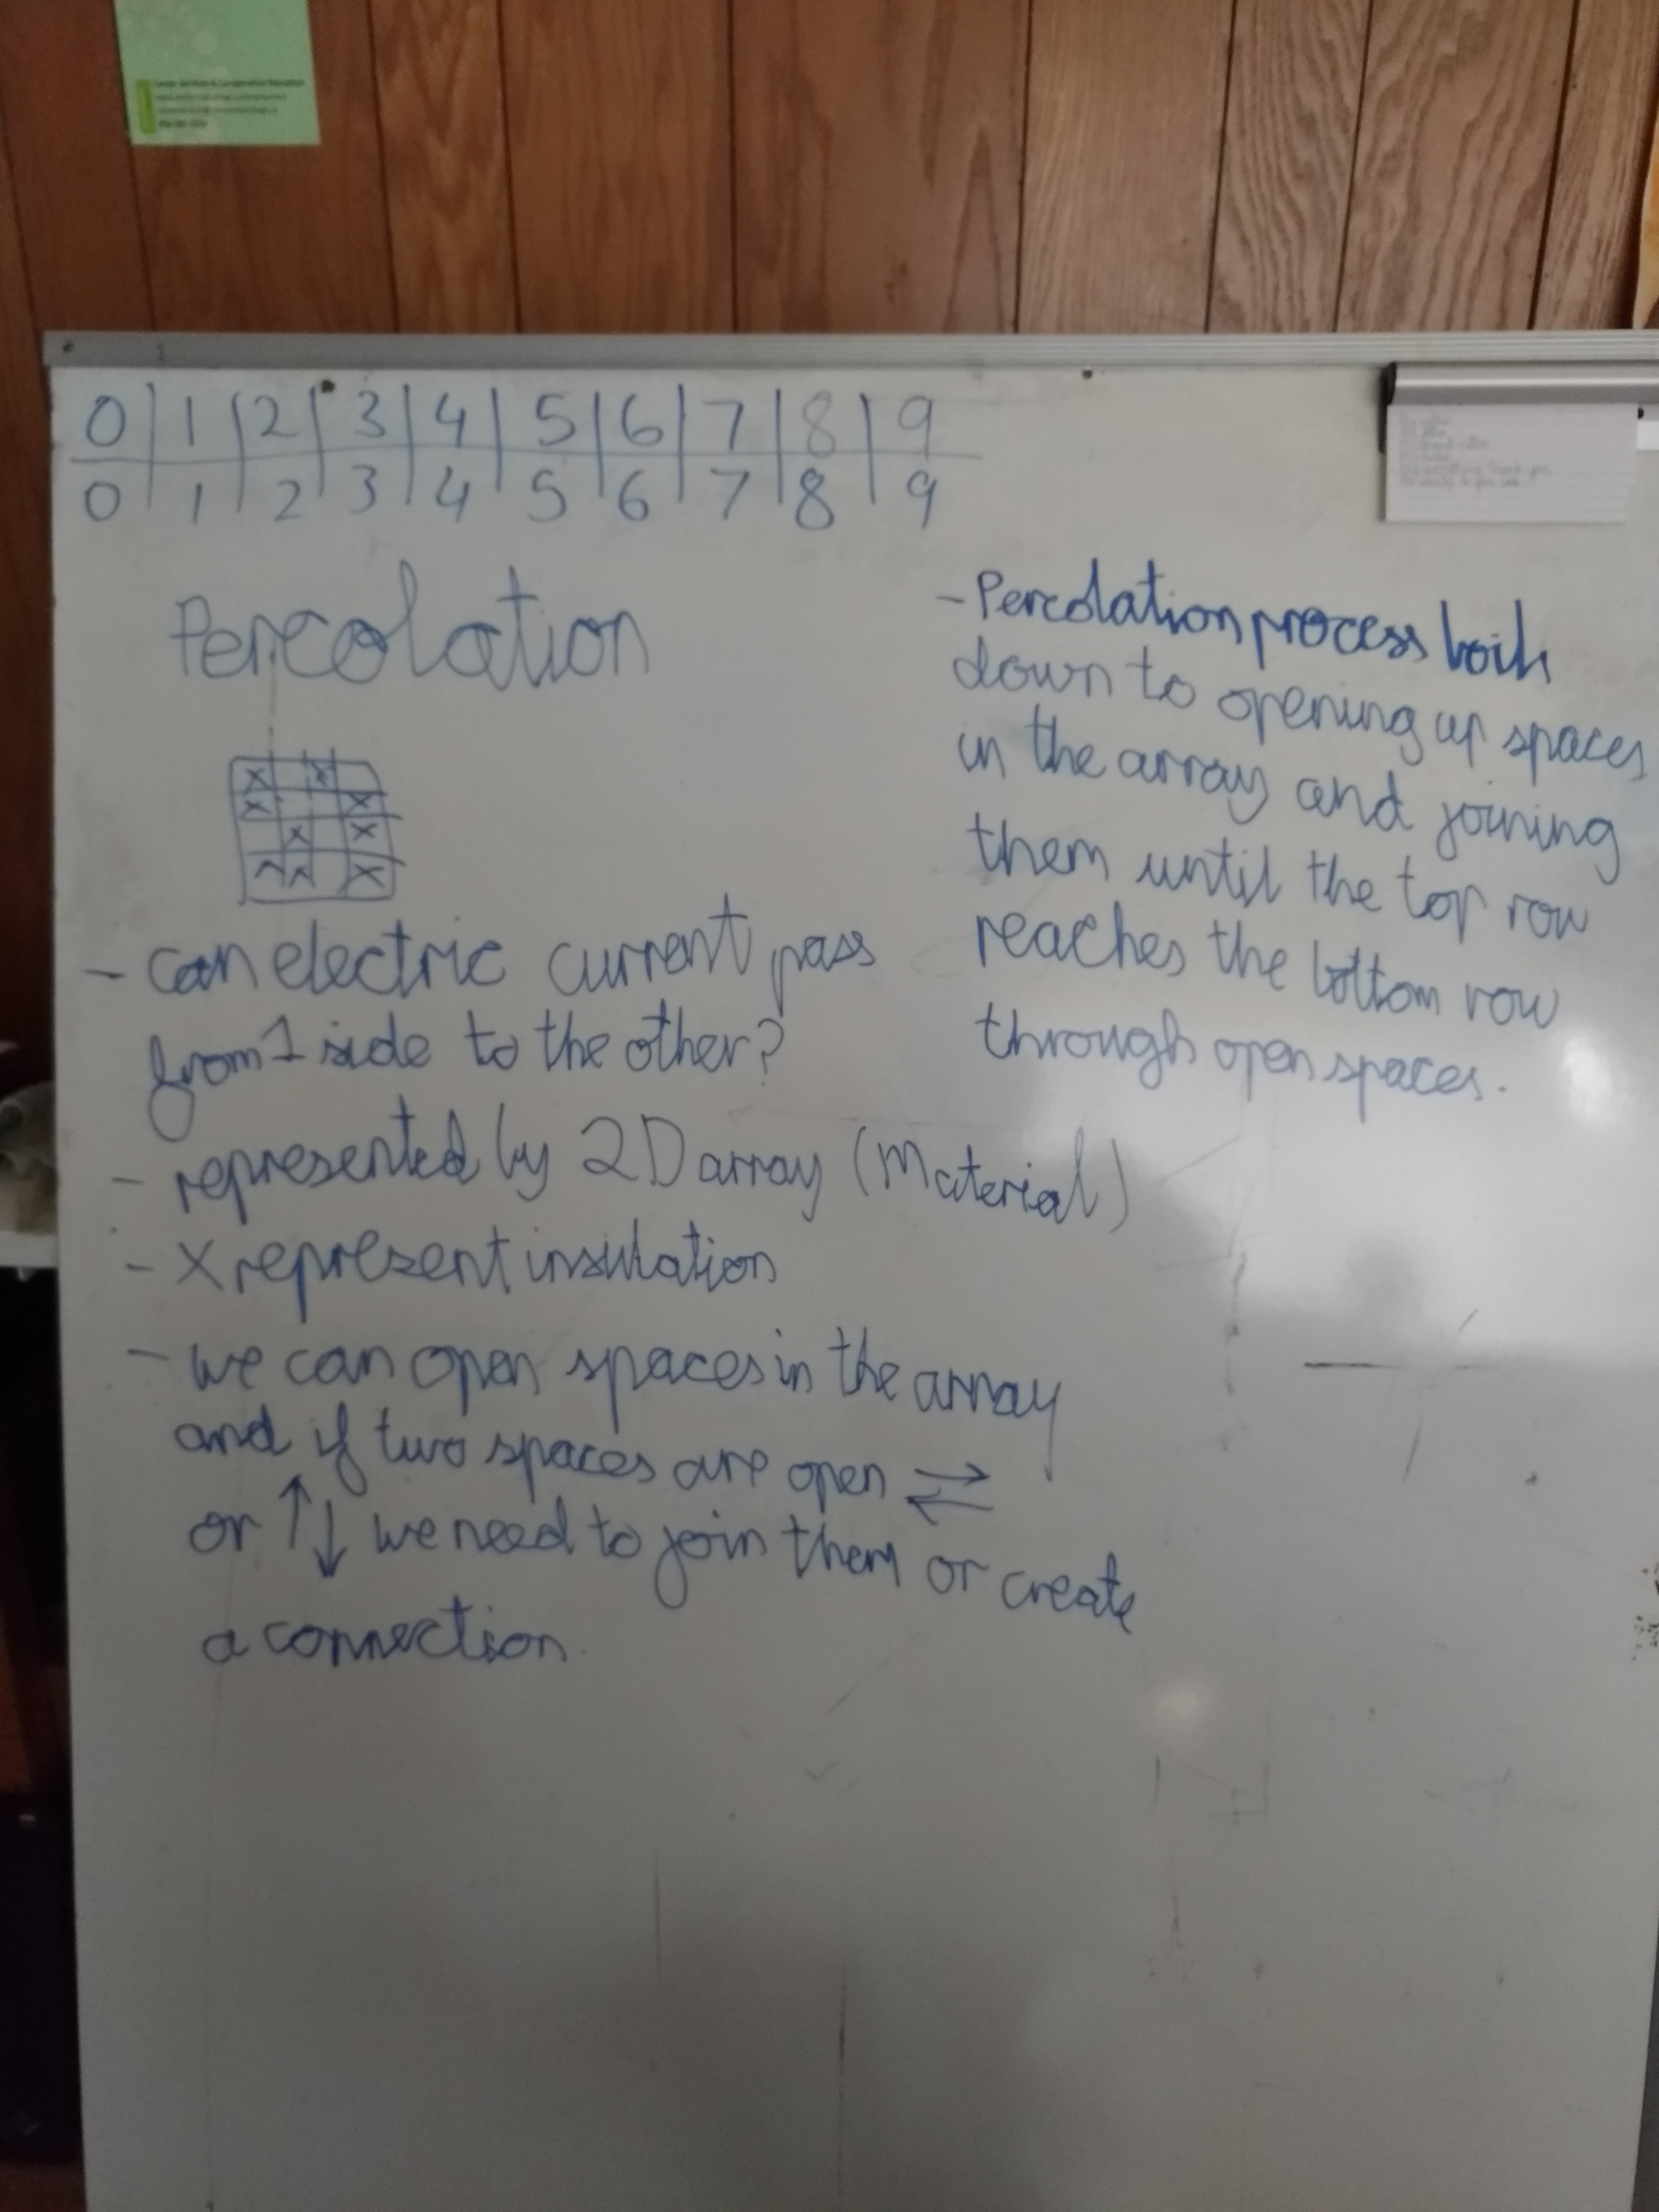 0 | 1 | 2 | 3 | 4 | 5 | 6 | 7 | 8 | 9
0 | 1 | 2 | 3 | 4 | 5 | 6 | 7 | 8 | 9
Percolation
X X
X X
X X
X X X
- can electric current pass
from 1 side to the other?
- represented by 2D array (Material)
- X represent insulation
- we can open spaces in the array
and if two spaces are open ⇄
or ↑↓ we need to join them or create
a connection
- Percolation process boils
down to opening up spaces
in the array and joining
them until the top row
reaches the bottom row
through open spaces.